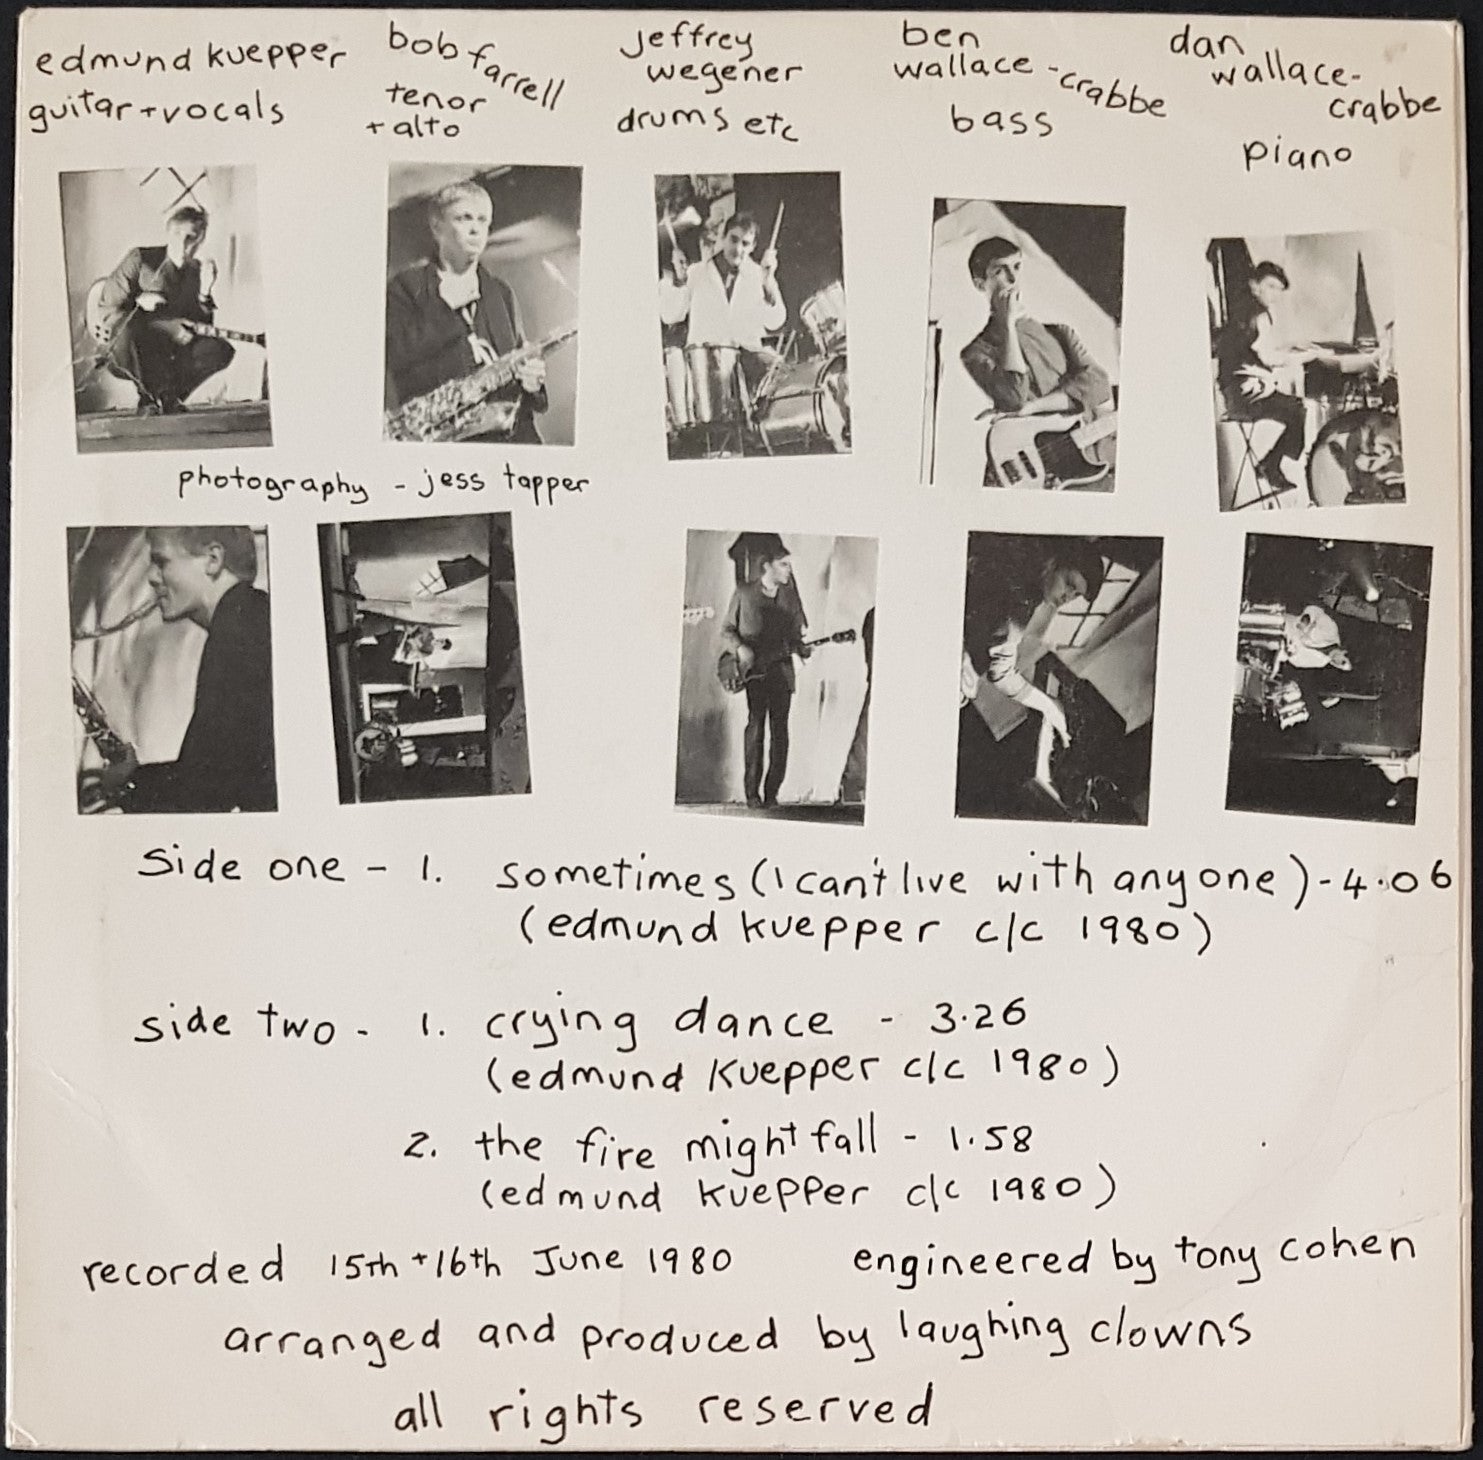 edmund kuepper
guitar + vocals
bob farrell
tenor
+ alto
jeffrey
wegener
drums etc
ben
wallace-crabbe
bass
dan
wallace-
crabbe
piano
photography - jess tapper
side one - 1. sometimes (I can't live with anyone) - 4.06
(edmund kuepper c/c 1980)
side two - 1. crying dance - 3.26
(edmund kuepper c/c 1980)
2. the fire might fall - 1.58
(edmund kuepper c/c 1980)
recorded 15th + 16th June 1980 engineered by tony cohen
arranged and produced by laughing clowns
all rights reserved